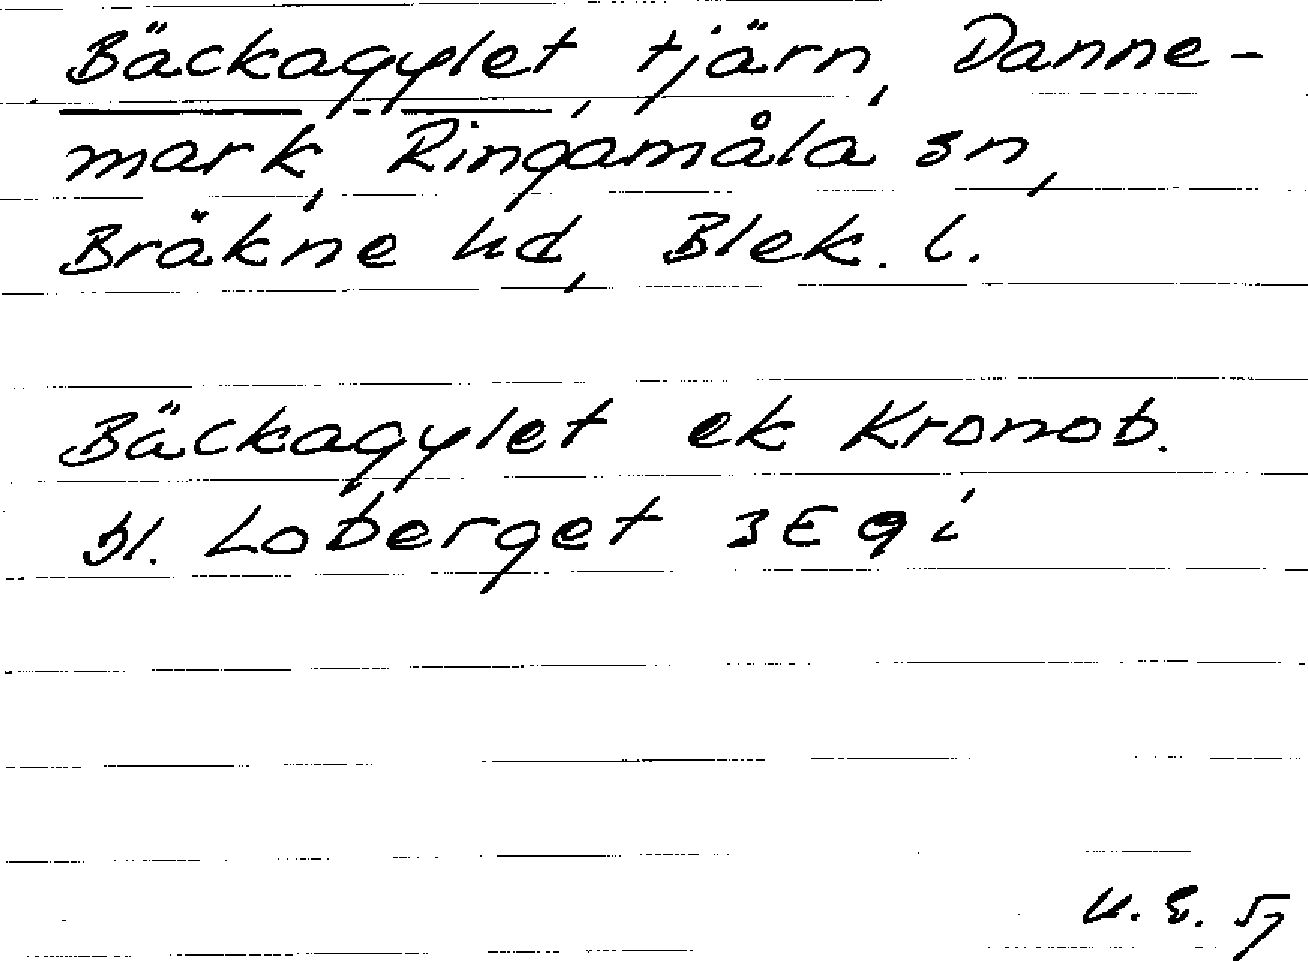 Bäckagylet, tjärn, Danne-
mark, Ringamåla sn,
Bräkne hd, Blek. l.
Bäckagylet ek Kronob.
bl. Loberget 3E9i